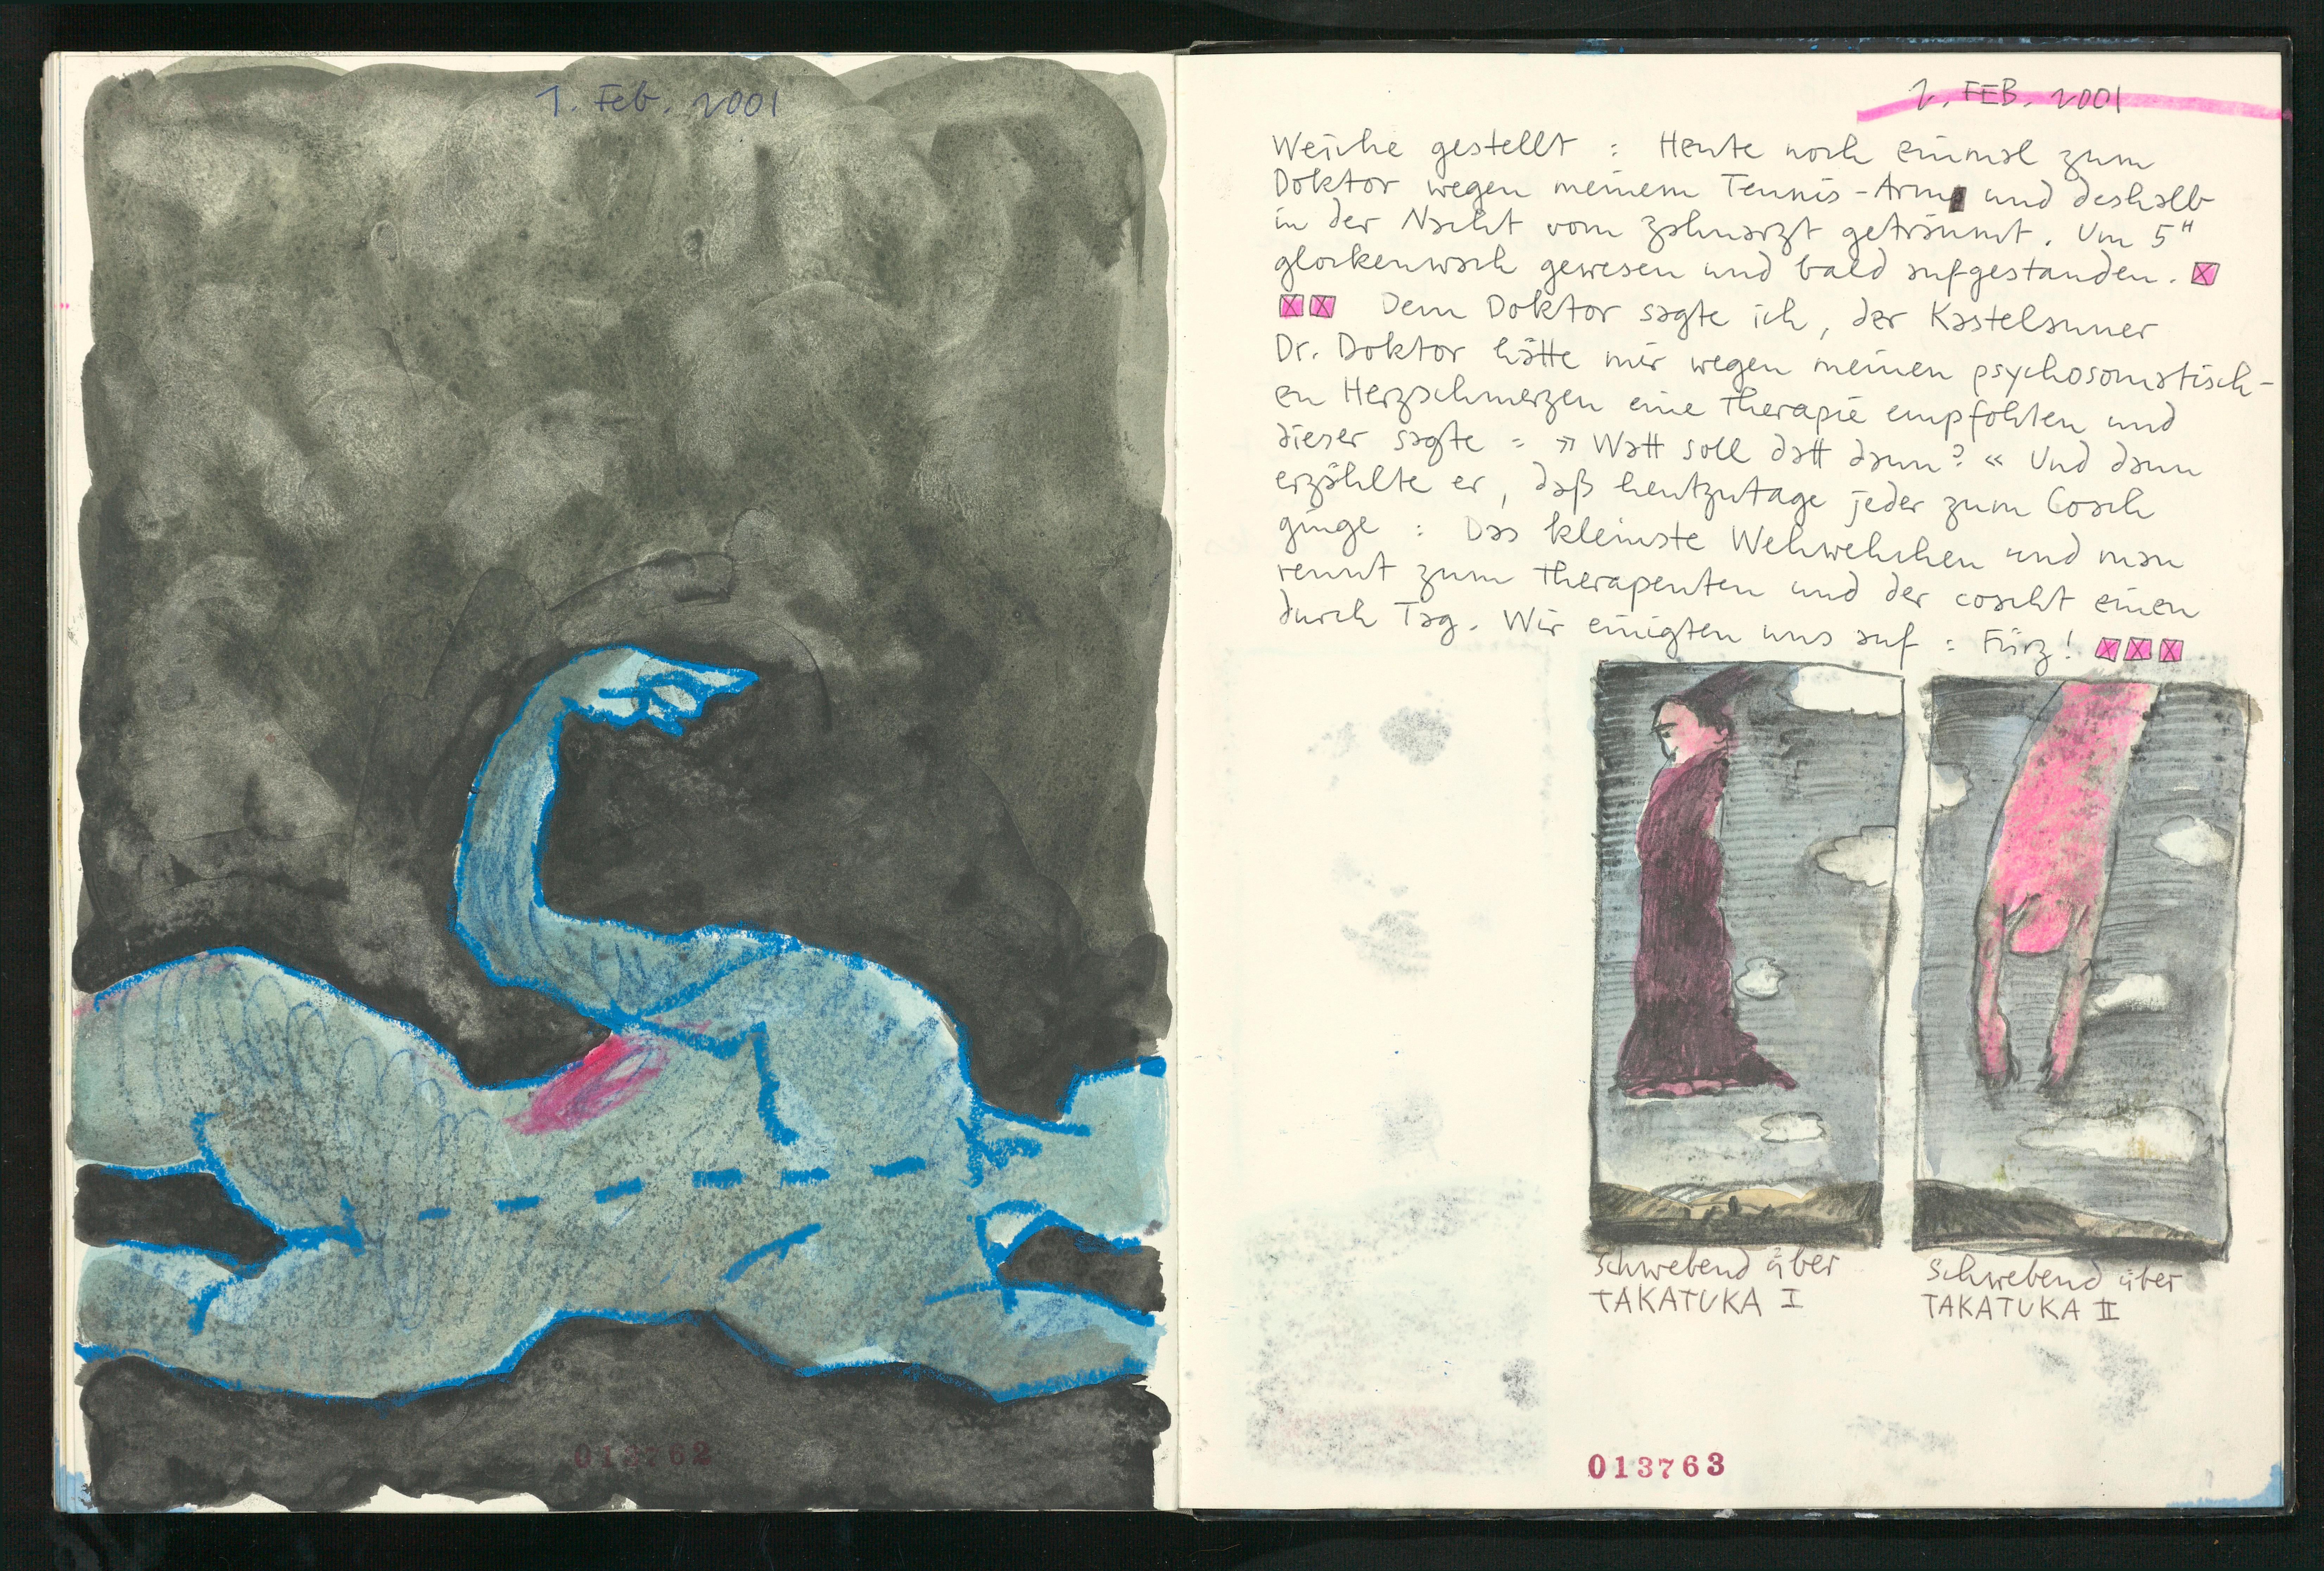 1. Feb. 2001
013762
2. FEB. 2001
Weiche gestellt : Heute noch einmal zum
Doktor wegen meinem Tennis-Arm und deshalb
in der Nacht vom Zahnarzt geträumt. Um 5ʰ
glockenwach gewesen und bald aufgestanden.
Dem Doktor sagte ich, der Kastelauner
Dr. Doktor hätte mir wegen meinen psychosomatisch-
en Herzschmerzen eine Therapie empfohlen und
dieser sagte : »Watt soll datt dann?« Und dann
erzählte er, daß heutzutage jeder zum Coach
ginge : Das kleinste Wehwehchen und man
rennt zum Therapeuten und der coacht einen
durch Tag. Wir einigten uns auf : Fürz!
Schwebend über
TAKATUKA I
Schwebend über
TAKATUKA II
013763